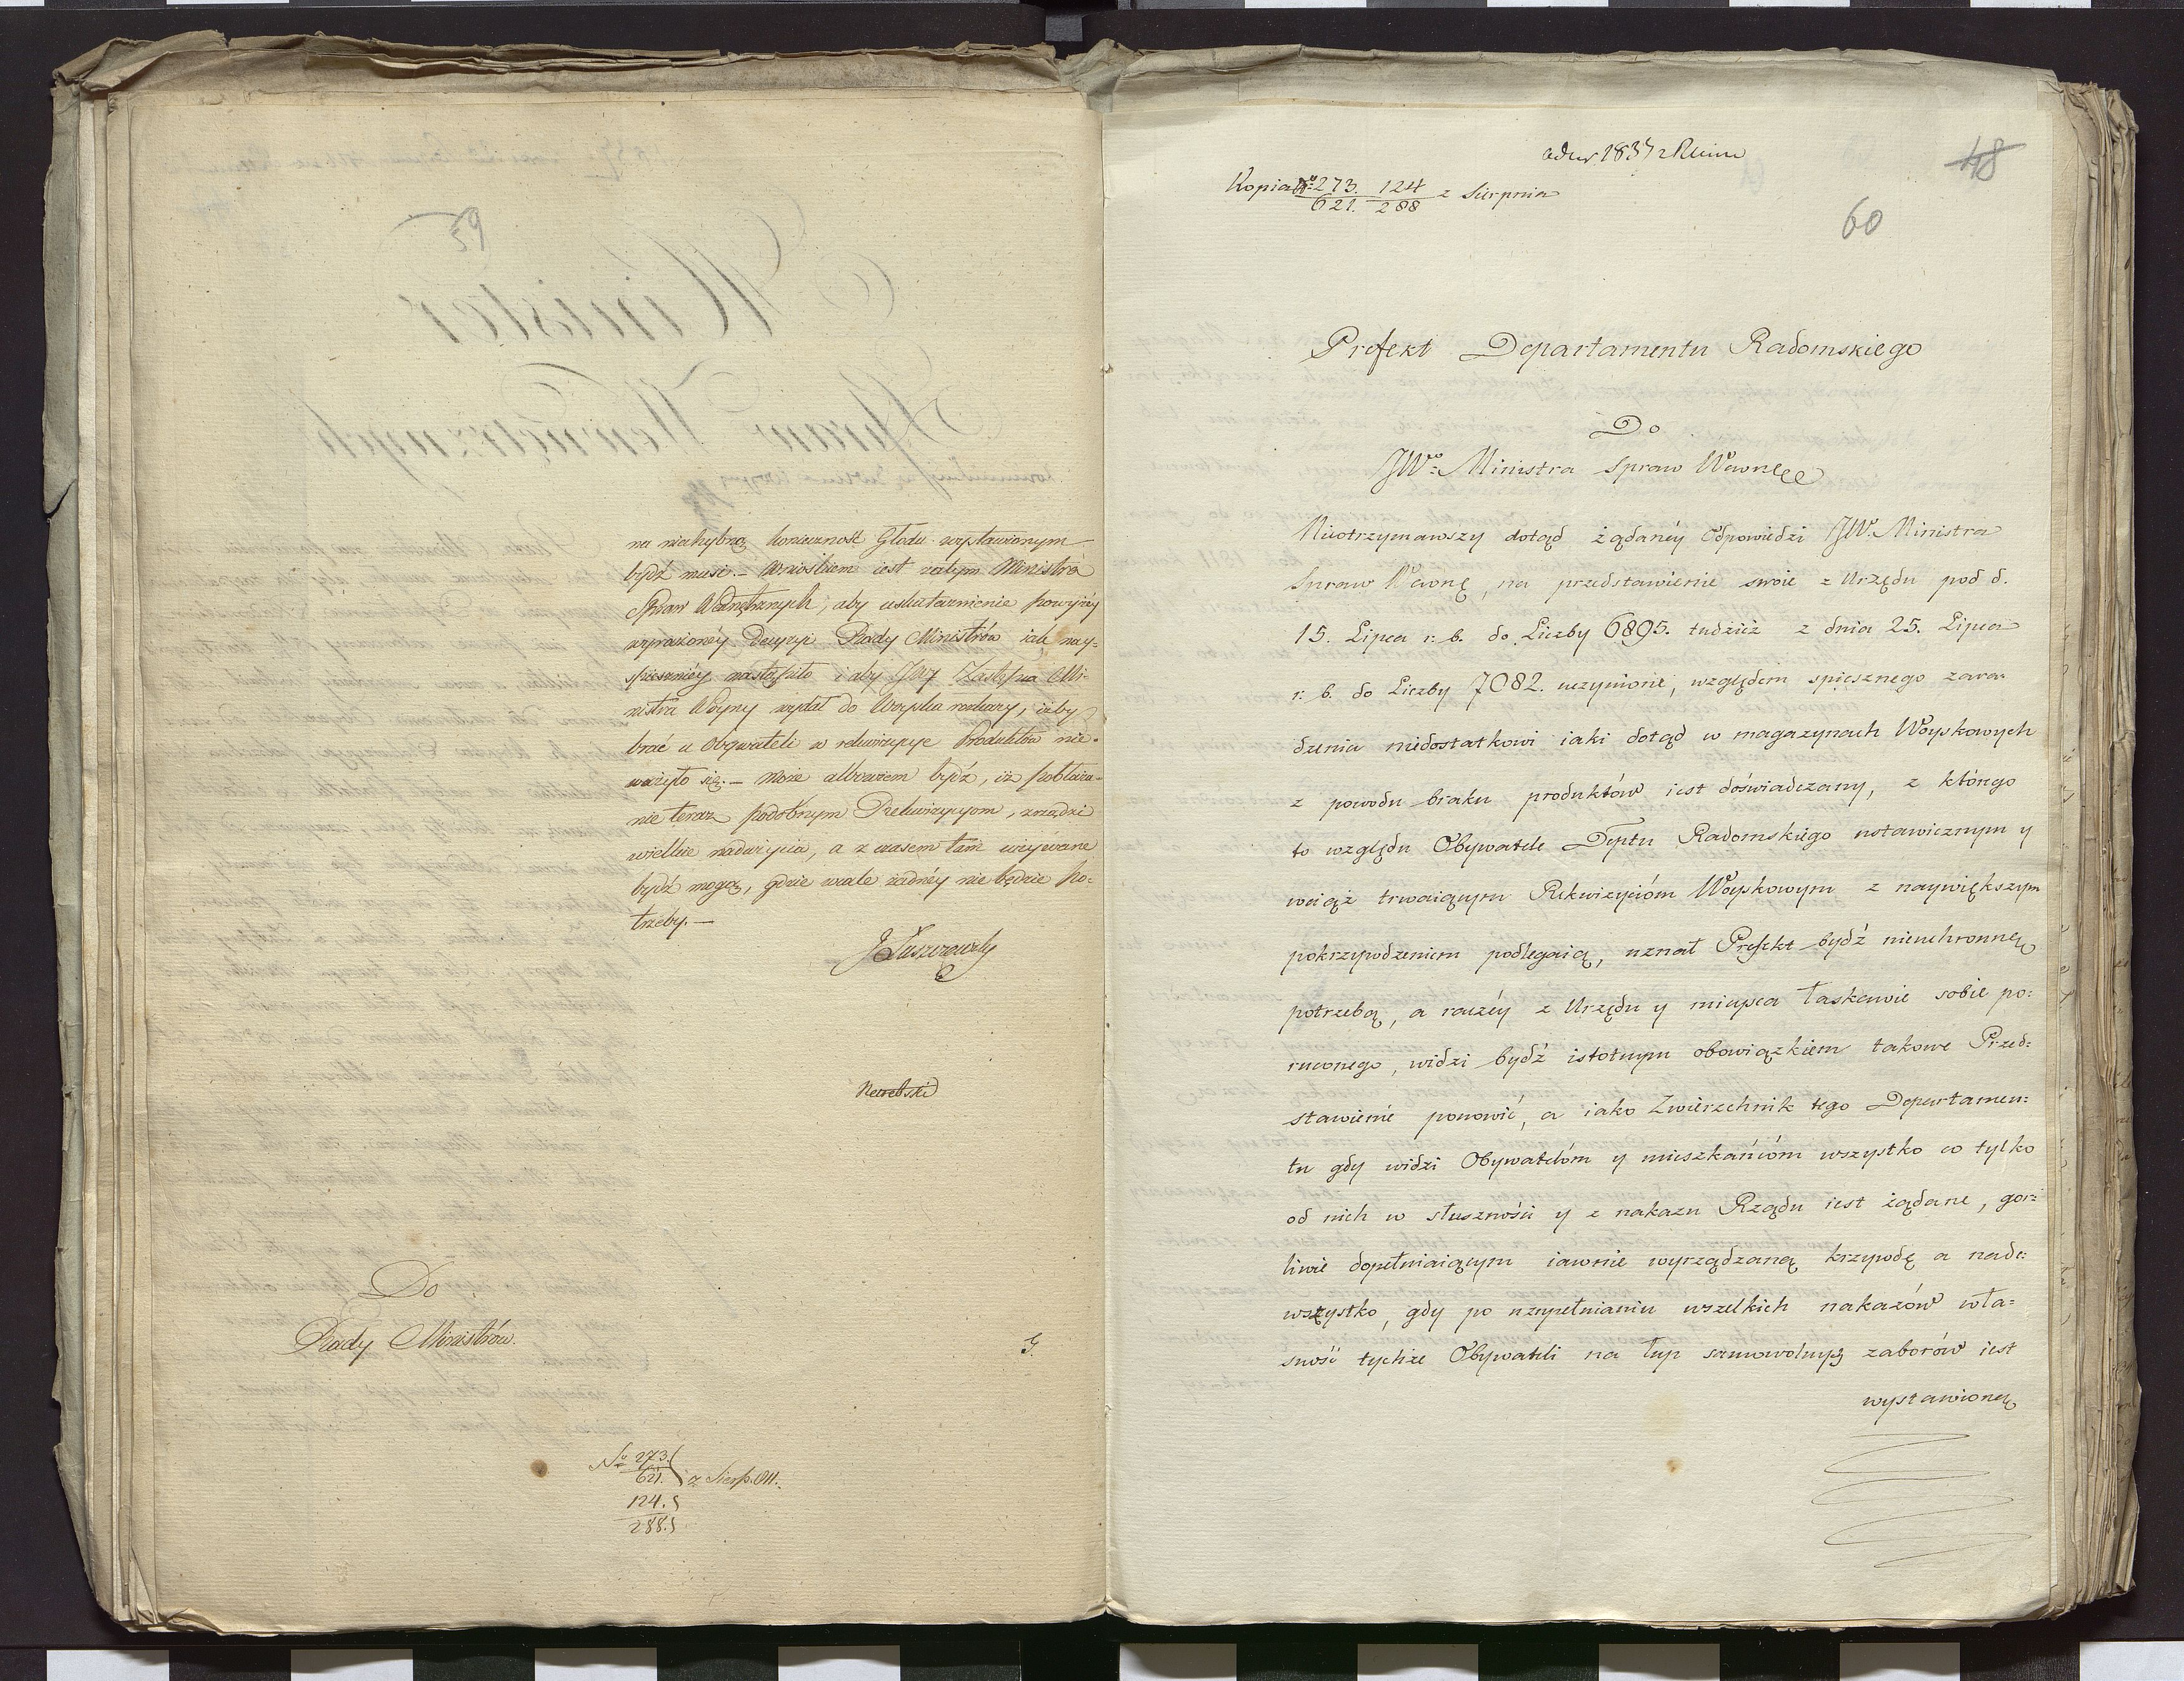 59
na niechybną konieczność Głodu wystawionym
bydź musi. — Wnioskiem iest zatym Ministra
Spraw Wewnętrznych, aby uskutecznienie powyżey
wyrażoney Decyzyi Rady Ministrów iak nay-
spieszniey nastąpiło i aby JW Zastępca Mi-
nistra Woyny wydał do Woyska rozkazy, iżby
brać u Obywateli w rekwizycye Produktów nie-
ważyło się. — Może albowiem bydź, iż pobłaża-
nie teraz podobnym Rekwizycyom, zrządzi
wielkie nadużycia, a z czasem tam używane
bydź mogą, gdzie wcale żadney nie będzie po-
trzeby. —
J Łuszczewski
Do
Rady Ministrów.
G.
No 273.
621. z Sierp. 811.
124.
288.
48
Kopia No 273. 124
621. 288 z Sierpnia
60
Prefekt Departamentu Radomskiego
Do
JWo Ministra Spraw Wewnę
Nieotrzymawszy dotąd żądanéy Odpowiedzi JW. Ministra
Spraw Wewnę, na przedstawienie swoie z Urzędu pod d.
15. Lipca r: b. do Liczby 6895. tudzież z dnia 25. Lipca
r: b. do Liczby 7082. uczynione, względem spiesznego zara-
dzenia niedostatkowi iaki dotąd w magazynach Woyskowych
z powodu braku produktów iest doświadczany, z którego
to względu Obywatele Deptu Radomskiego ustawicznym y
wciąż trwaiącym Rekwizycióm Woyskowym z naywiększym
pokrzywdzeniem podlegaią, uznał Prefekt bydź nieuchronną
potrzebą, a raczéy z Urzędu y mieysca łaskawie sobie po-
ruczonego, widzi bydź istotnym obowiązkiem takowe Przed-
stawienie ponowić, a iako Zwierzchnik tego Departamen-
tu gdy widzi Obywatelóm y mieszkańcóm wszystko co tylko
od nich w słuszności y z nakazu Rządu iest żądane, gor-
liwie dopełniaiącym iawnie wyrządzaną krzywdę a nade-
wszystko, gdy po uzupełnianiu wszelkich nakazów wła-
sność tychże Obywateli na łup samowolnych zaborów iest
wystawioną